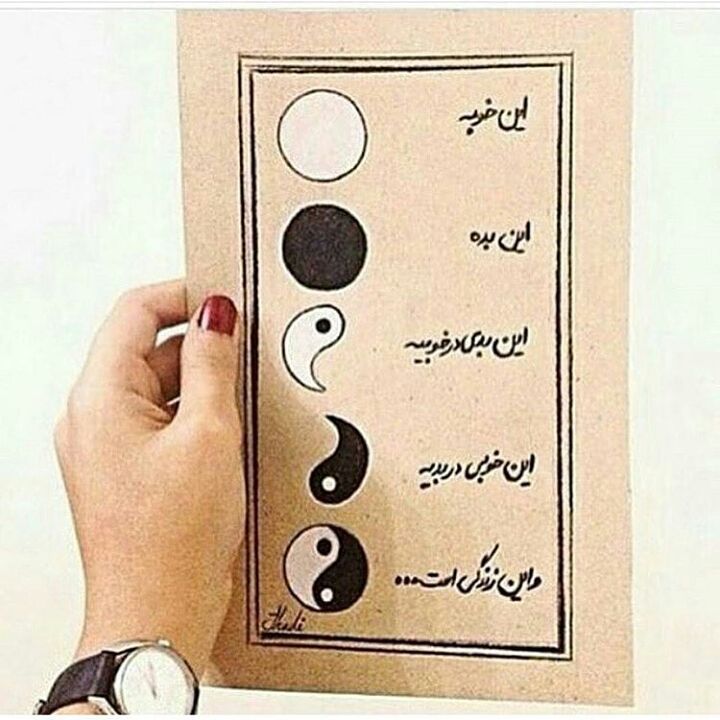 این خوبه
این بده
این بدی در خوبیه
این خوبی در بدیه
و این زندگی است...
Hadi